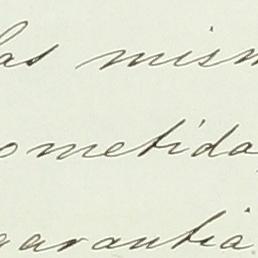 las mism
ometida
garantia